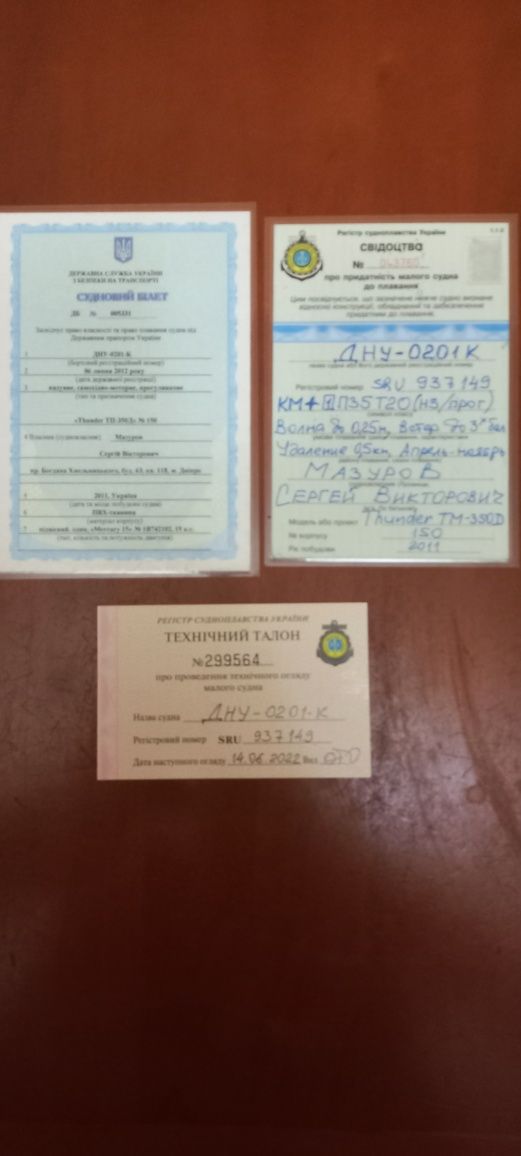 ДЕРЖАВНА СЛУЖБА УКРАЇНИ
З БЕЗПЕКИ НА ТРАНСПОРТІ
СУДНОВИЙ БІЛЕТ
ДБ № 005331
Засвідчує право власності та право плавання судна під
Державним прапором України
1 ДНУ-0201-К
(бортовий реєстраційний номер)
2 06 липня 2012 року
(дата державної реєстрації)
3 надувне, самохідно-моторне, прогулянкове
(тип та призначення судна)
«Thunder ТП-350Д» № 150
4 Власник (судновласник) Мазуров
Сергій Вікторович
пр. Богдана Хмельницького, буд. 63, кв. 118, м. Дніпро
5 2011, Україна
(дата та місце побудови судна)
6 ПВХ-тканина
(матеріал корпусу)
7 підвісний, один, «Mercury 15» № 1В742102, 15 к.с.
(тип, кількість та потужність двигунів)
Регістр судноплавства України
1.1.6
СВІДОЦТВО
№
про придатність малого судна
до плавання
Цим посвідчується, що зазначене нижче судно визнане
відносно конструкції, обладнання та забезпечення
придатним до плавання.
ДНУ-0201К
назва судна або його державний реєстраційний номер
Регістровий номер SRU 937149
КМ П35Т20 (НЗ/прог)
Волна до 0,25м, Ветер до 3х бал
Удаление 0,5км, Апрель-ноябрь
МАЗУРОВ
СЕРГЕЙ ВИКТОРОВИЧ
Модель або проект Thunder TM-350D
№ корпусу 150
Рік побудови 2011
РЕГІСТР СУДНОПЛАВСТВА УКРАЇНИ
ТЕХНІЧНИЙ ТАЛОН
№299564
про проведення технічного огляду
малого судна
Назва судна ДНУ-0201-К
Регістровий номер SRU 937149
Дата наступного огляду 14.06.2022 Вид